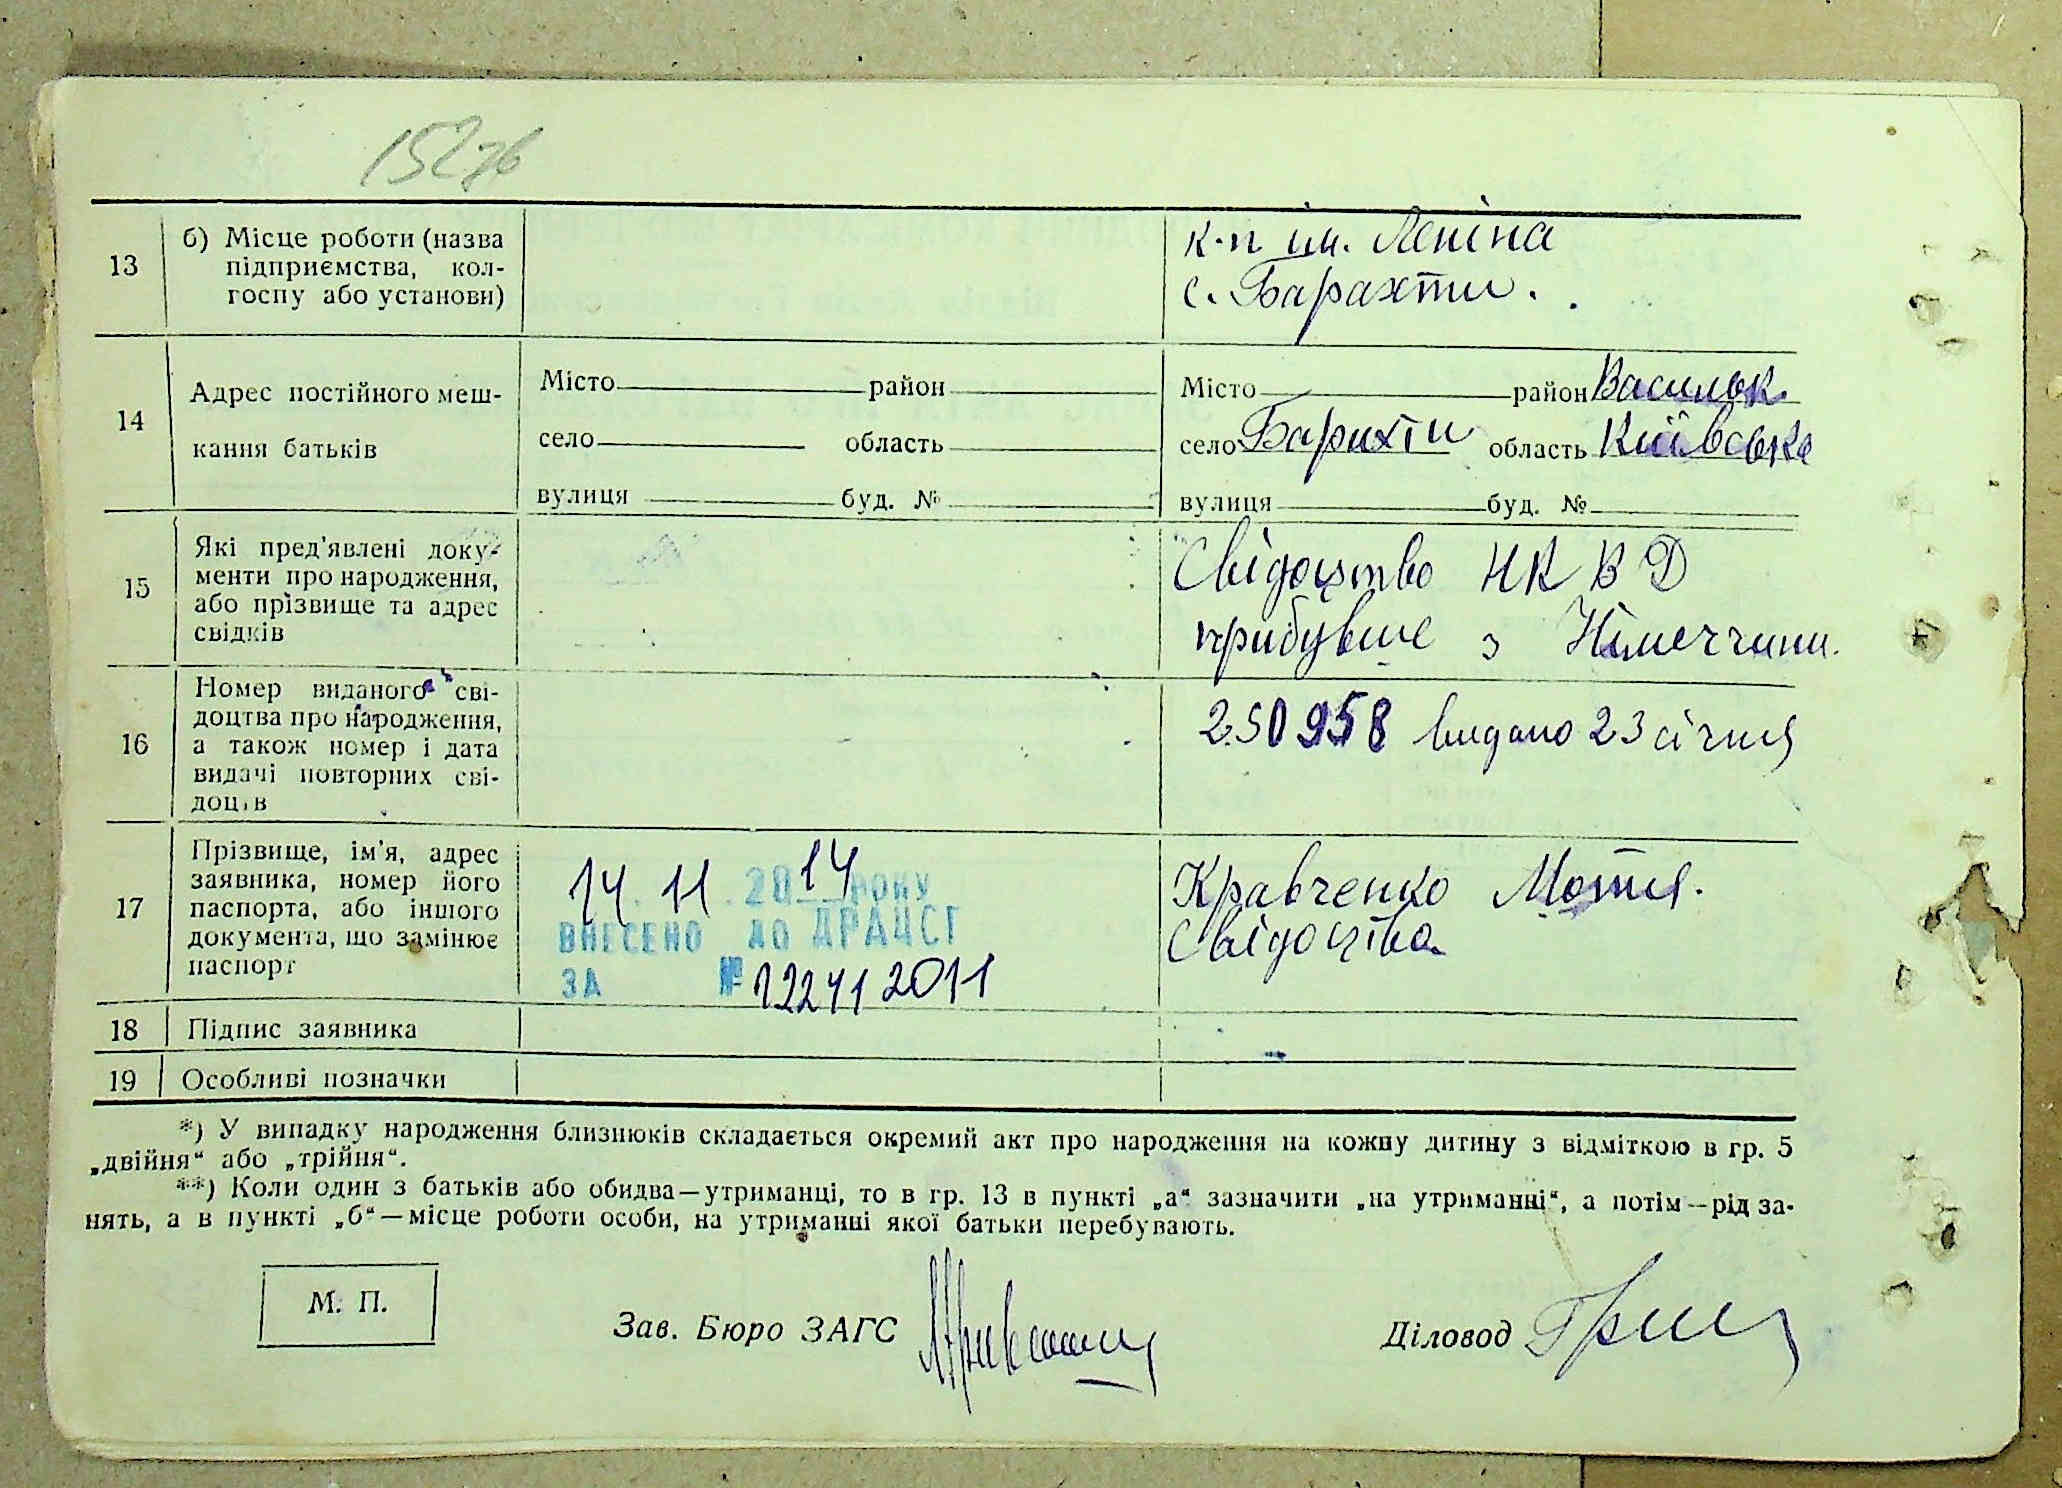 152зв
13
б) Місце роботи (назва
підприємства, кол-
госпу або установи)
к-п ім. Леніна
с. Барахти.
14
Адрес постійного меш-
кання батьків
Місто район
село область
вулиця буд. №
Місто район Васильк.
село Барихти область Київська
вулиця буд. №
15
Які пред'явлені доку-
менти про народження,
або прізвище та адрес
свідків
Свідоцтво НКВД
прибувше з Німеччини.
16
Номер виданого сві-
доцтва про народження,
а також номер і дата
видачі повторних сві-
доцтв
250958 видано 23 січня
17
Прізвище, ім'я, адрес
заявника, номер його
паспорта, або іншого
документа, що замінює
паспорт
14.11.2014 РОКУ
ВНЕСЕНО ДО ДРАЦСГ
ЗА №12241 2011
Кравченко Мотя.
Свідоцтва
18
Підпис заявника
19
Особливі позначки
*) У випадку народження близнюків складається окремий акт про народження на кожну дитину з відміткою в гр. 5
„двійня“ або „трійня“.
**) Коли один з батьків або обидва—утриманці, то в гр. 13 в пункті „а“ зазначити „на утриманні“, а потім—рід за-
нять, а в пункті „б“—місце роботи особи, на утриманні якої батьки перебувають.
М. П.
Зав. Бюро ЗАГС
Діловод